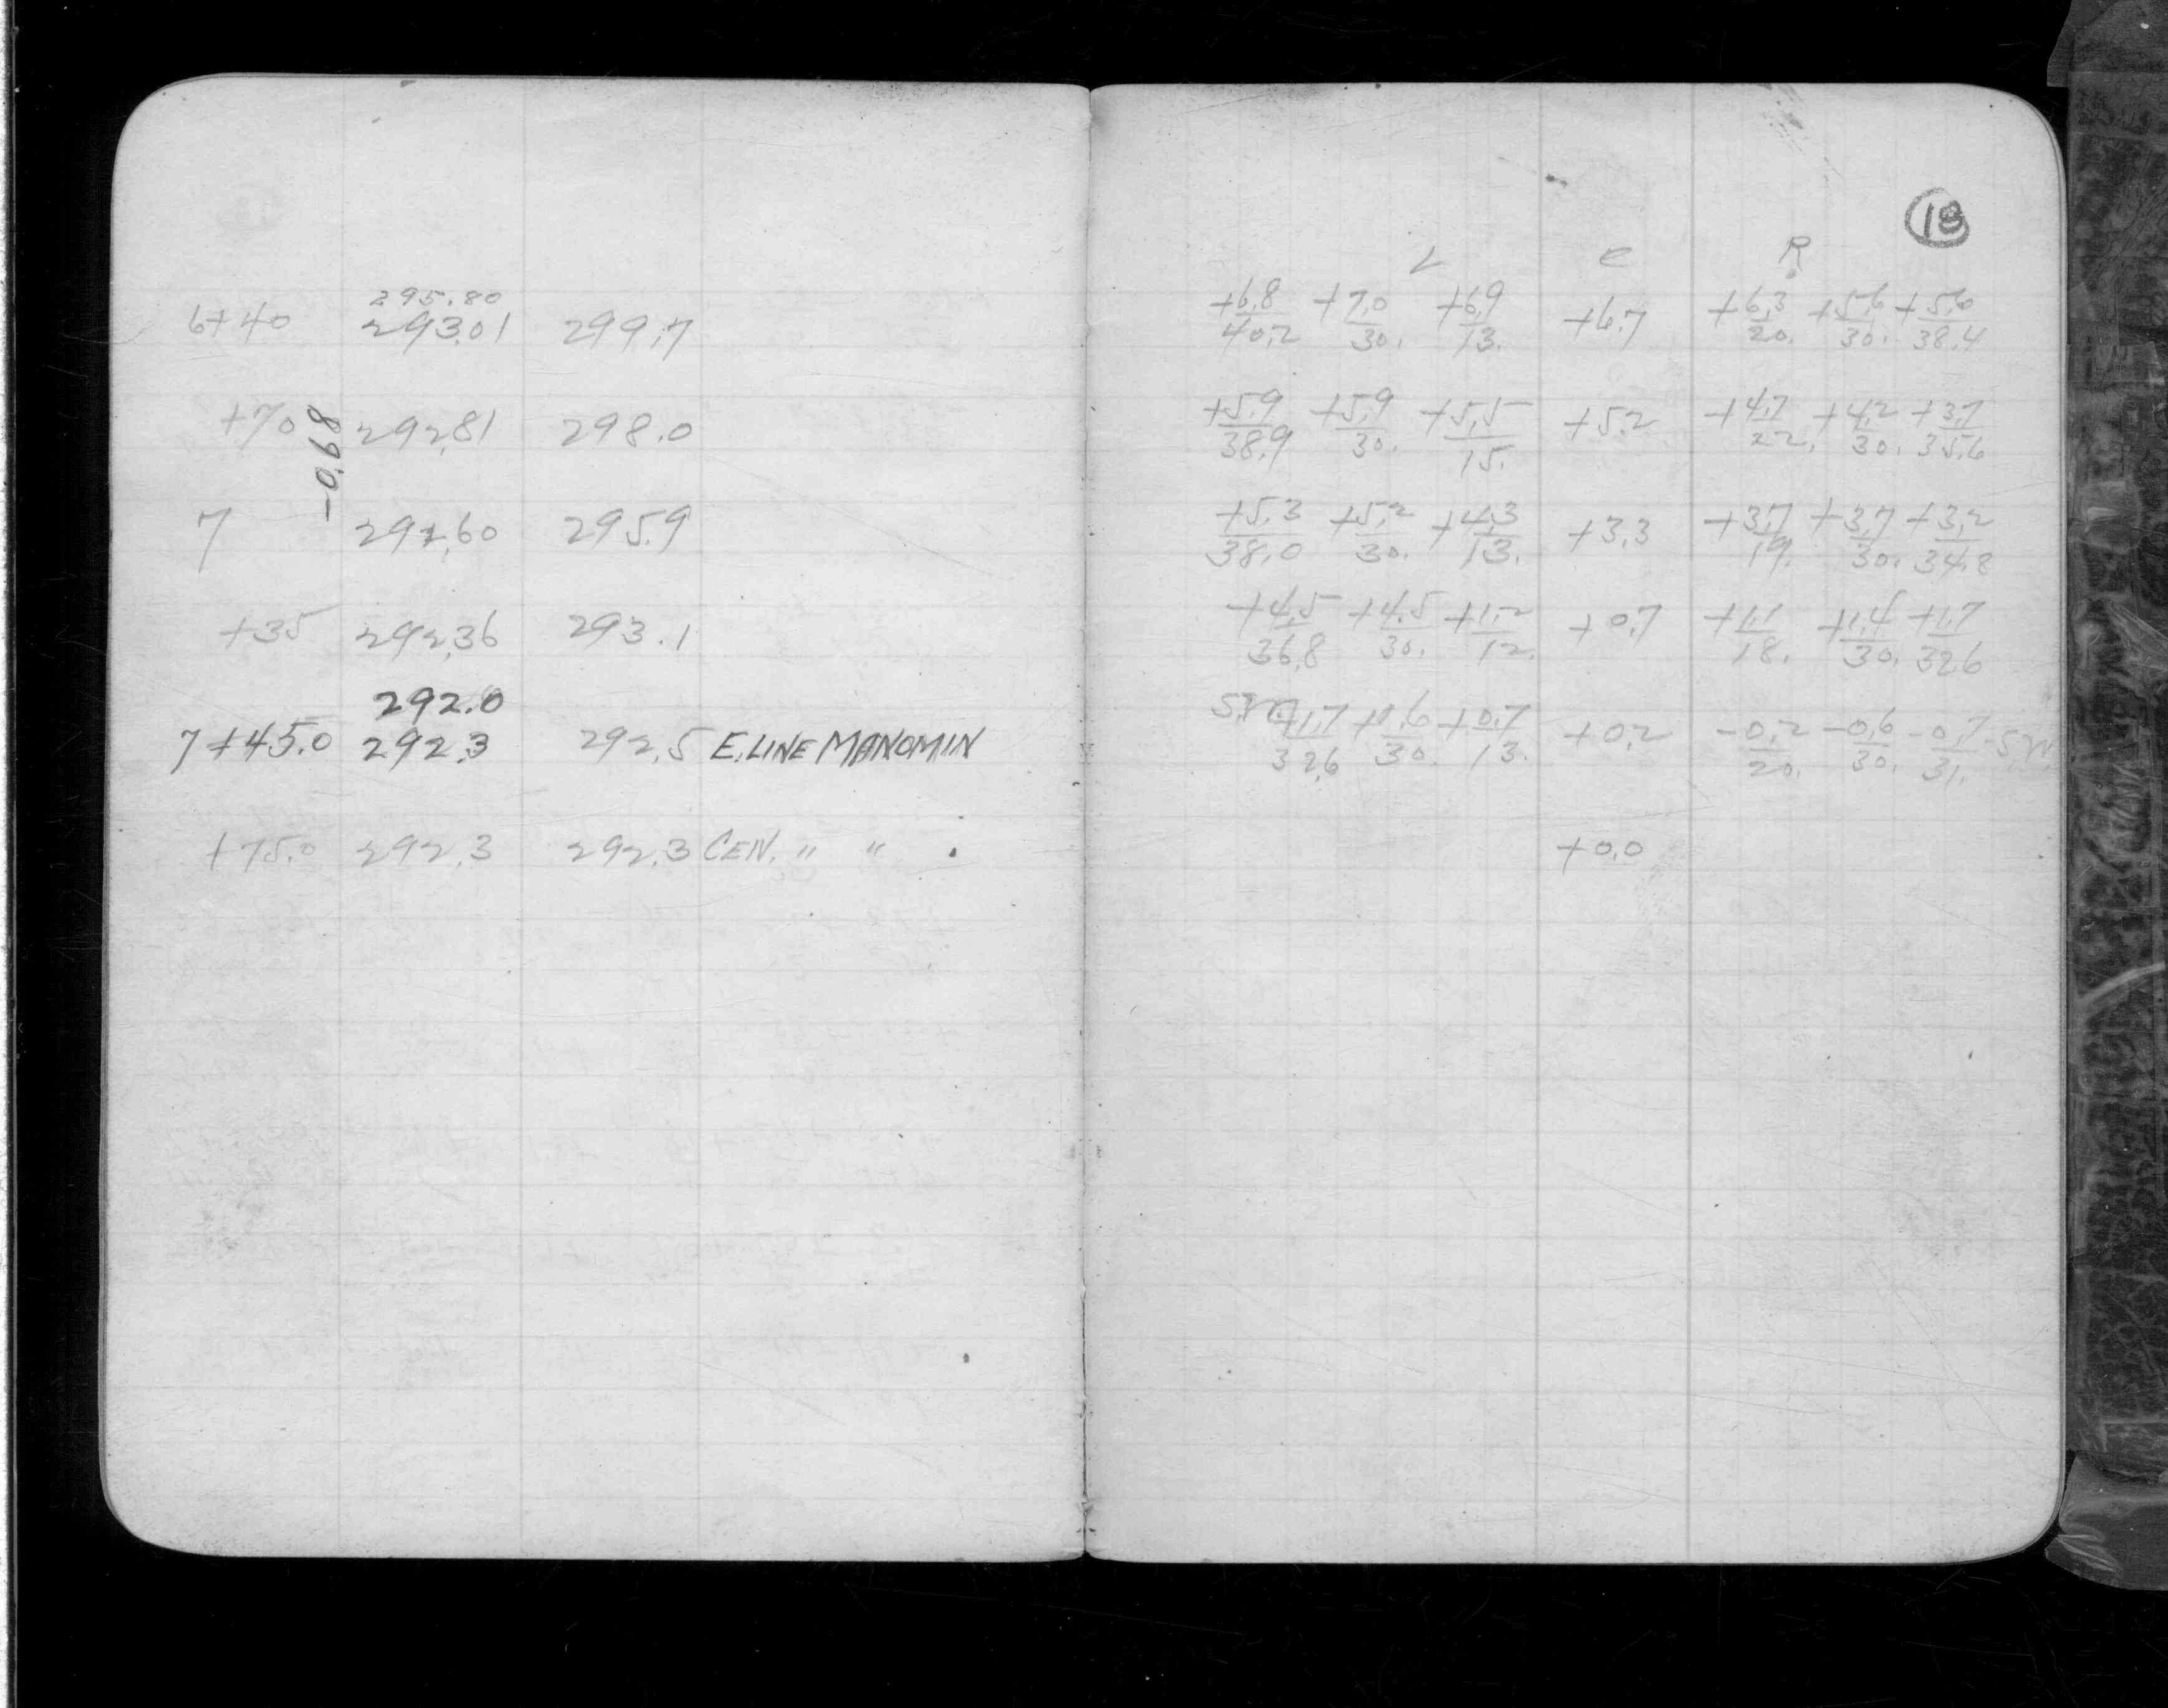 18
L C R
295.80
6+40 293.01 299.7 +6.8/40.2 +7.0/30. +6.9/13. +6.7 +6.3/20. +5.6/30. +5.6/38.4
+70 292.81 298.0 +5.9/38.9 +5.9/30. +5.5/15. +5.2 +4.7/22. +4.2/30. +3.7/35.6
-0.68
7 292.60 295.9 +5.3/38.0 +5.2/30. +4.3/13. +3.3 +3.7/19. +3.7/30. +3.2/34.8
+35 292.36 293.1 +4.5/36.8 +4.5/30. +1.2/12. +0.7 +1.1/18. +1.4/30. +1.7/32.6
292.0
7+45.0 292.3 292.5 E. LINE MANOMIN +1.7/32.6 +1.6/30. +0.7/13. +0.2 -0.2/20. -0.6/30. -0.7/31.
+75.0 292.3 292.3 CEN. " " +0.0